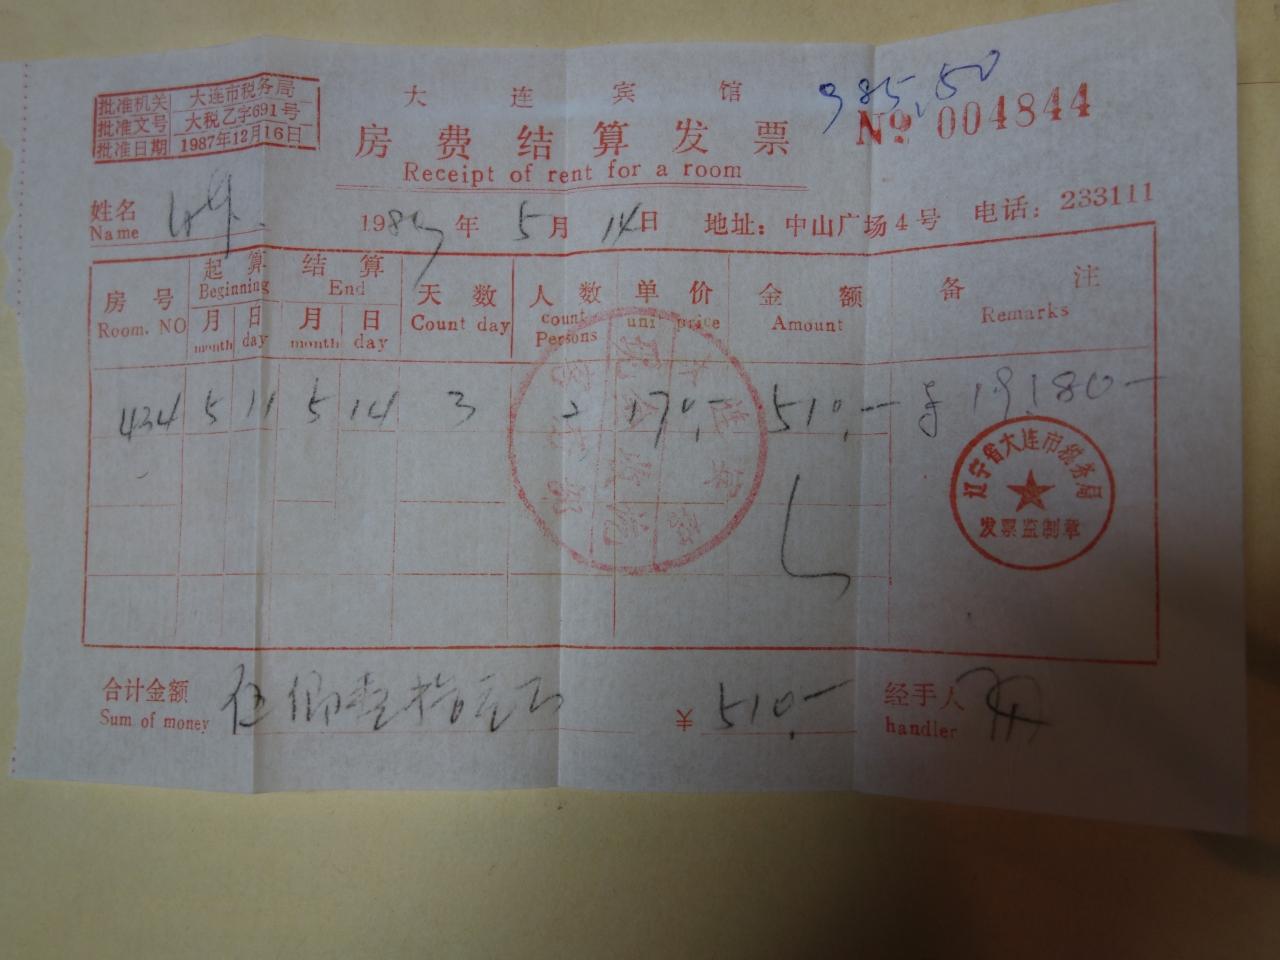 批准机关 大连市税务局
批准文号 大税乙字691号
批准日期 1987年12月16日
大连宾馆
985.50
房费结算发票
№ 004844
Receipt of rent for a room
姓名
Name
1989年 5月 14日 地址：中山广场4号 电话：233111
房号 起算 结算 天数 人数 单价 金额 备注
Room. NO Beginning End Count day count Persons uni price Amount Remarks
月 日 月 日
month day month day
434 5 11 5 14 3 2 170.- 510.- 19180-
辽宁省大连市税务局
发票监制章
合计金额 伍佰壹拾元正 ¥ 510.- 经手人
Sum of money handler